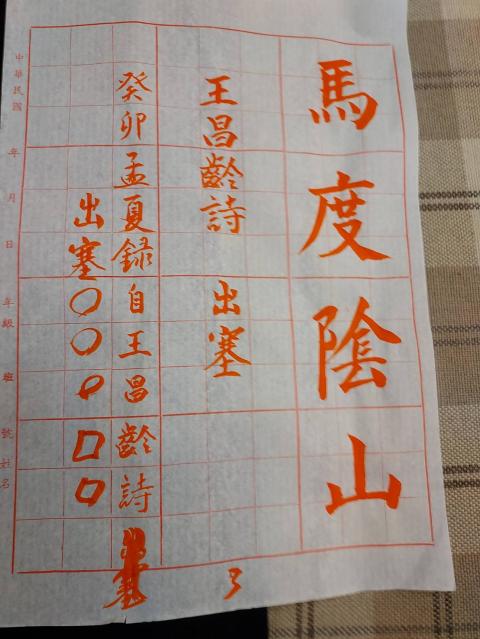 馬度陰山
王昌齡詩 出塞
3
癸卯孟夏録自王昌齡詩
出塞〇〇〇□□
中華民國 年 月 日 年級 班 號 姓名